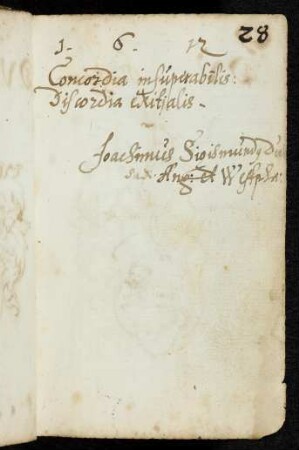 1. 6. 12
28
Concordia insuperabilis:
Discordia exitialis.
Joachimus Sigismundus Dux
Sax: Ang: et Westpha: